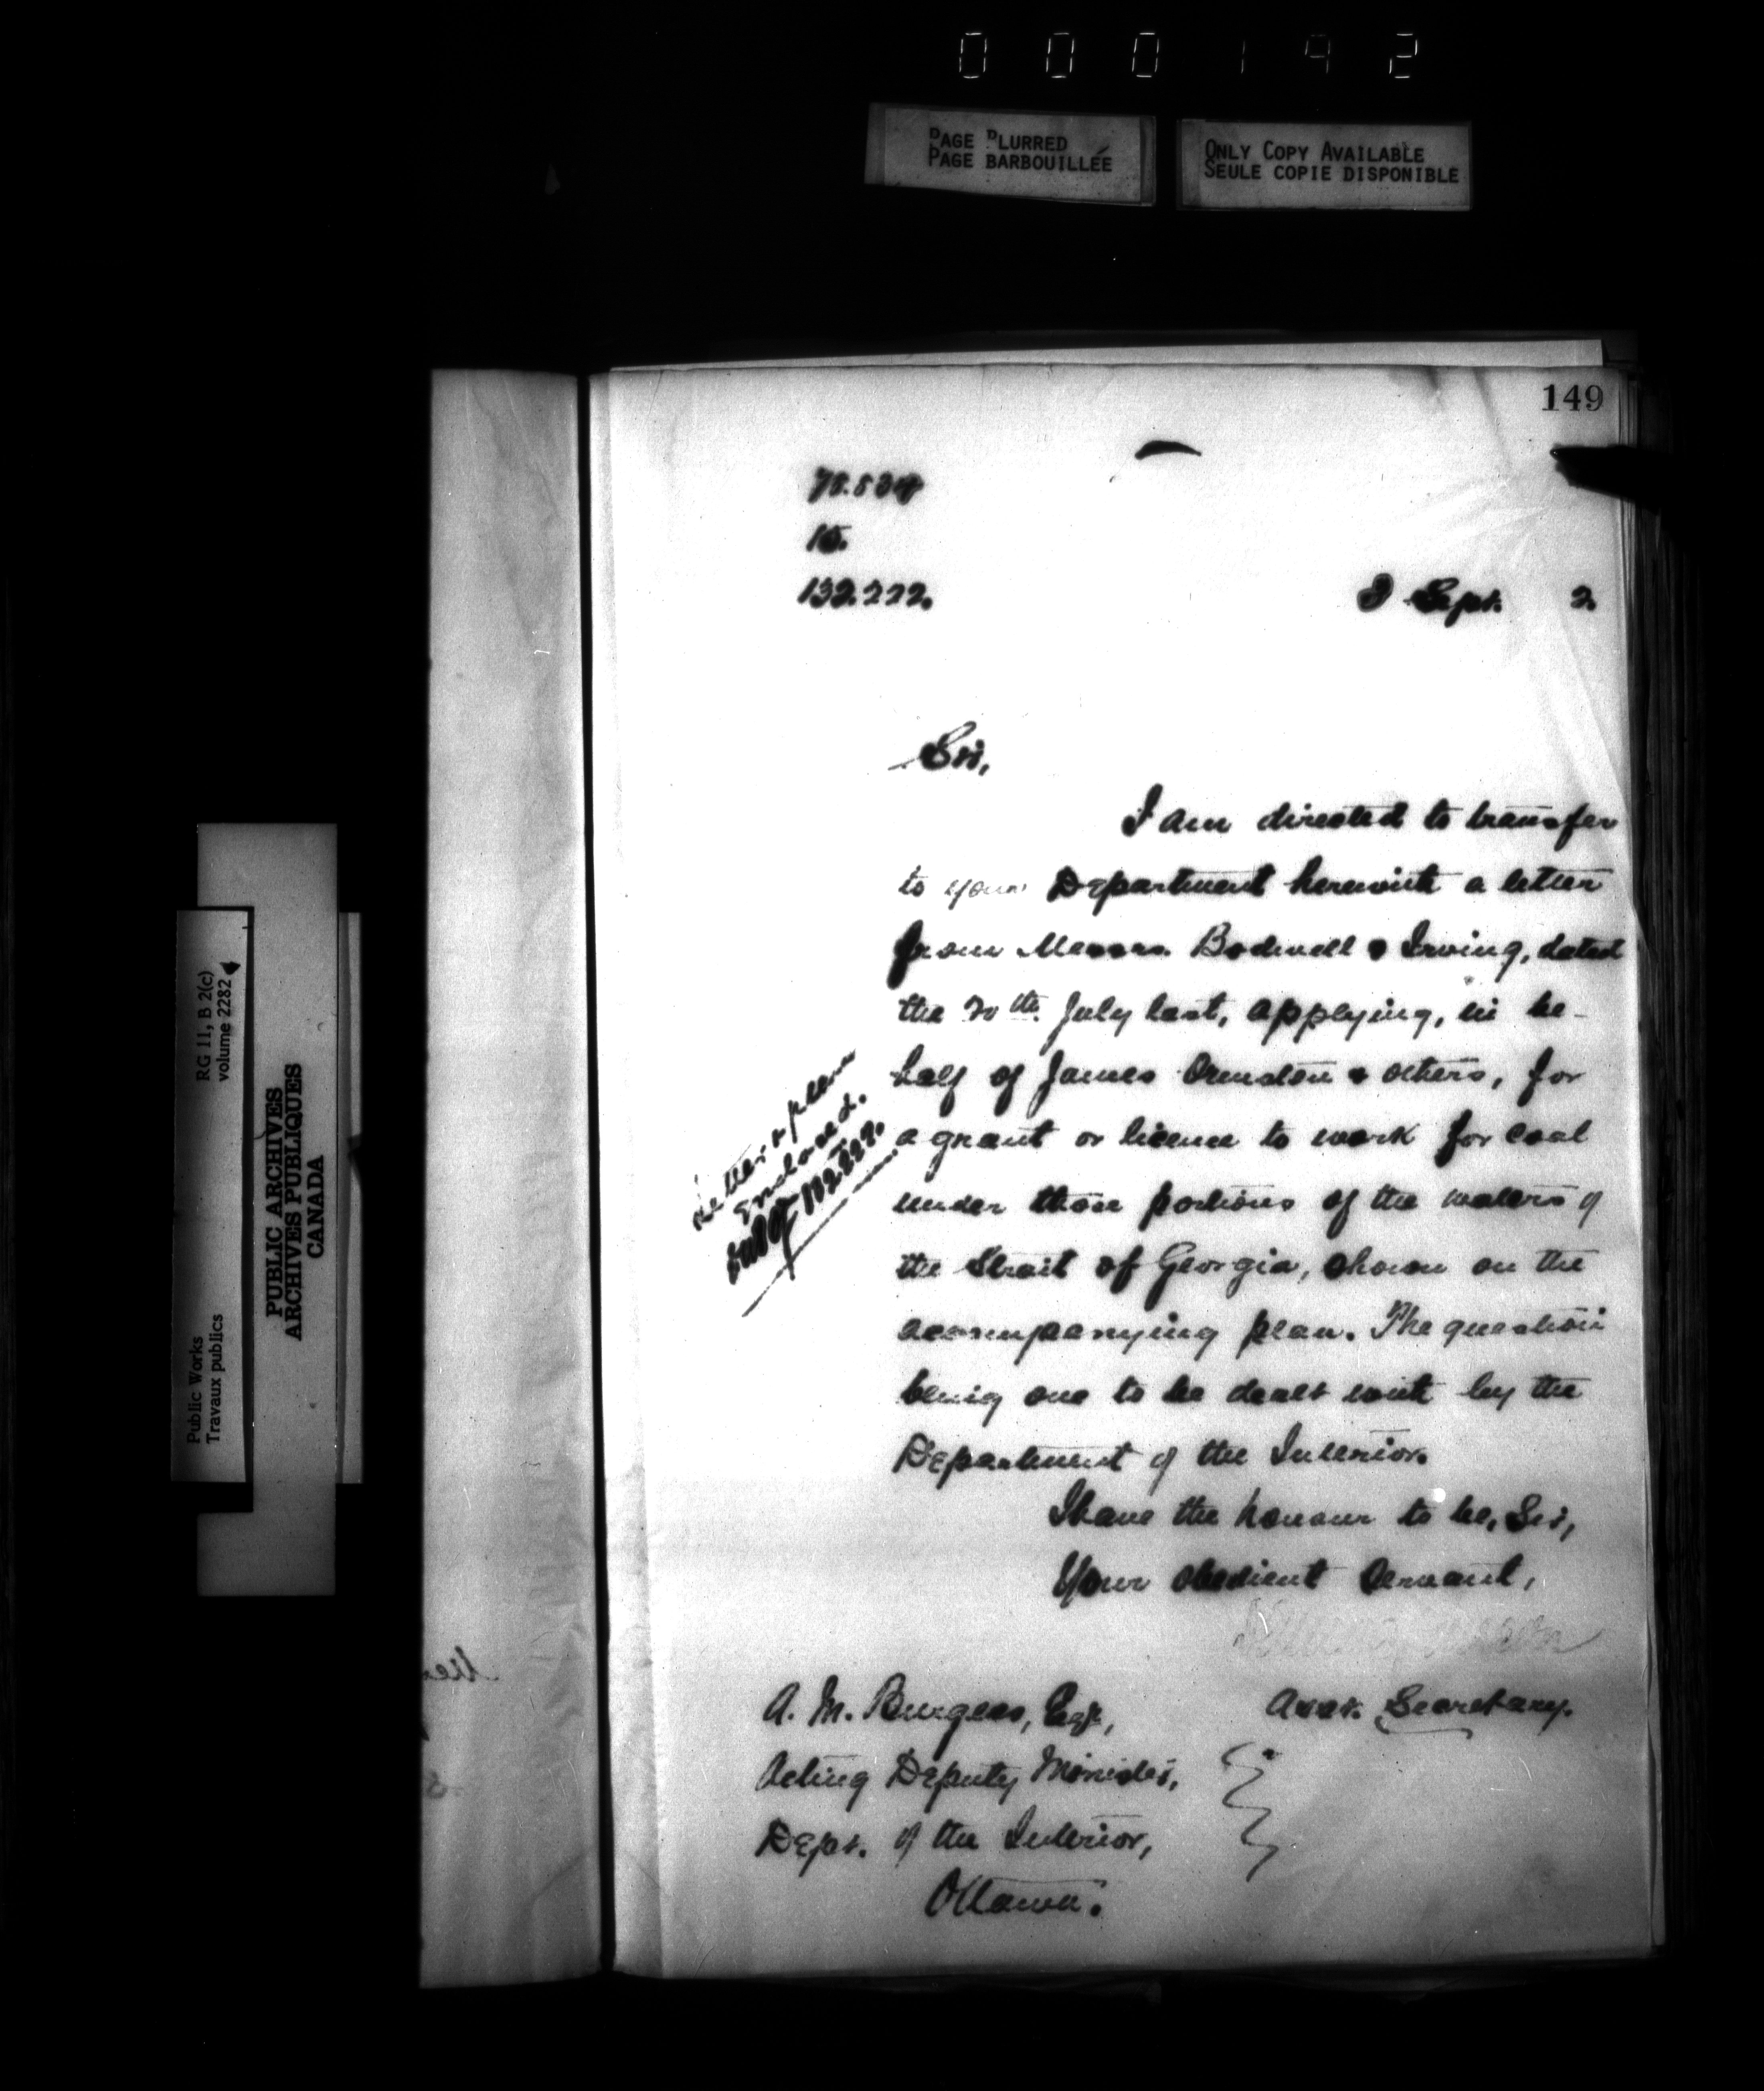 000192
PAGE BLURRED
PAGE BARBOUILLÉE
ONLY COPY AVAILABLE
SEULE COPIE DISPONIBLE
149
15.
132.222.
Sept. 2
Sir,
I am directed to transfer
to your Department herewith a letter
from Messrs. Bodwell & Irving, dated
the th July last, applying, in be-
half of James Ormston & others, for
a grant or licence to work for coal
under those portions of the waters of
the Strait of Georgia, shown on the
accompanying plan. The question
being one to be dealt with by the
Department of the Interior.
I have the honour to be, Sir,
Your obedient servant,
Asst. Secretary.
A. M. Burgess, Esq.,
Acting Deputy Minister,
Dept. of the Interior,
Ottawa.
Letter & plan
Enclosed.
RG 11, B 2(c)
volume 2282
Public Works
Travaux publics
PUBLIC ARCHIVES
ARCHIVES PUBLIQUES
CANADA